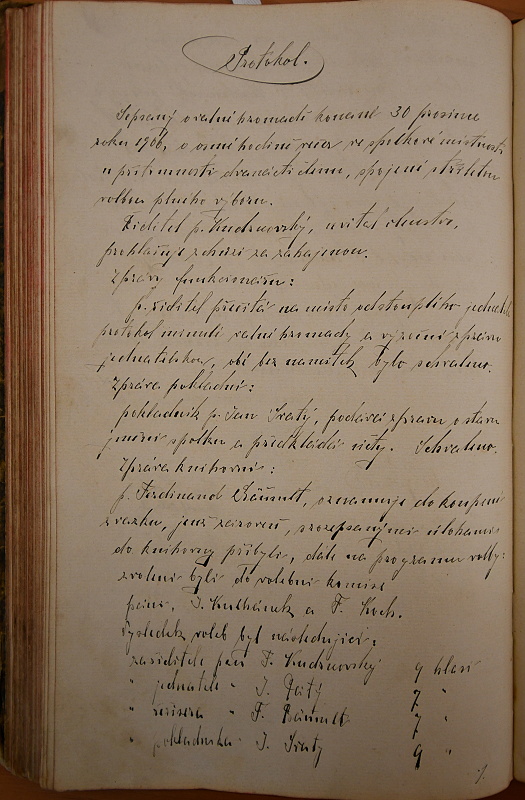 Protokol.
Sepsaný o valní hromadě konané 30 prosince
roku 1906, o osmi hodině večer ve spolkové místnosti
u přítomnosti dvanácti členu, spojené s
volbou plniho výboru.
Ředitel p. Kudrnovský, uvítal členstvo,
prohlašuje schůzi za zahajenou.
Zprávy funkcionářu:
p. ředitel přečítá na místo odstouplího jednatele
protokol minulí valní hromady a výroční zprávu
jednatelskou, obě bez namitek bylo schváleno.
Zpráva pokladní:
pokladník p. Jan Svatý, podává zprávu o stavu
jmění spolku a předkládá účty. Schváleno.
Zpráva knihovní:
p. Ferdinand Bäumelt, oznamuje do koupení
svazku, jenž zároveň, s rozepsanými úlohami
do knihovny přibyli, dále na programu volby:
zvoleni byli do volební komise
páni, J. Kulhánek a F. Koch.
Vysledek voleb byl následující:
za ředitele pan F. Kudrnovský 9 hlasů
" jednatele " J. 7 "
" revisera " F. Bäumelt 7 "
" pokladníka " J. Svatý 9 "
./.